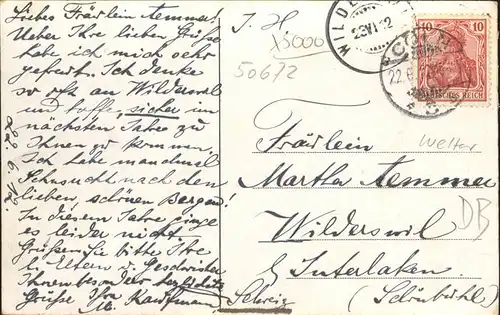 Liebes Fräulein Temme!
Über Ihre lieben Grüße
habe ich mich sehr
gefreut. Ich denke
so oft an Wilderswil
und hoffe, sicher im
nächsten Jahre zu
Ihnen zu kommen.
Ich habe manchmal
Sehnsucht nach den
lieben, schönen Bergen!
In diesem Jahre ginge
es leider nicht.
Grüßen Sie bitte Ihre
l. Eltern u. Geschwister
Ihnen besonders herzliche
Grüße Ihr M. Kaufmann
22.6.12
J. H
15000
50672
WILDE
23 VI 12
22.6
10 10
DEUTSCHES REICH
Welter
DB
Fräulein
Martha Temme
Wilderswil
b/ Interlaken
Schweiz
(Schönbühl)